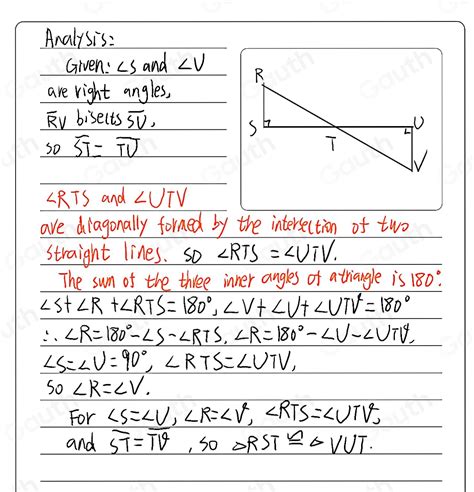 Analysis:
Given: ∠S and ∠U
are right angles,
R̅V̅ bisects S̅U̅,
so S̅T̅ = T̅U̅
R
S
T
U
V
∠RTS and ∠UTV
are diagonally formed by the intersection of two
straight lines. so ∠RTS = ∠UTV.
The sum of the three inner angles of a triangle is 180°.
∠S+∠R+∠RTS=180°, ∠V+∠U+∠UTV=180°
∴ ∠R=180°-∠S-∠RTS, ∠R=180°-∠U-∠UTV,
∠S=∠U=90°, ∠RTS=∠UTV,
So ∠R=∠V.
For ∠S=∠U, ∠R=∠V, ∠RTS=∠UTV,
and S̅T̅=T̅V̅, so △RST ≌ △VUT.